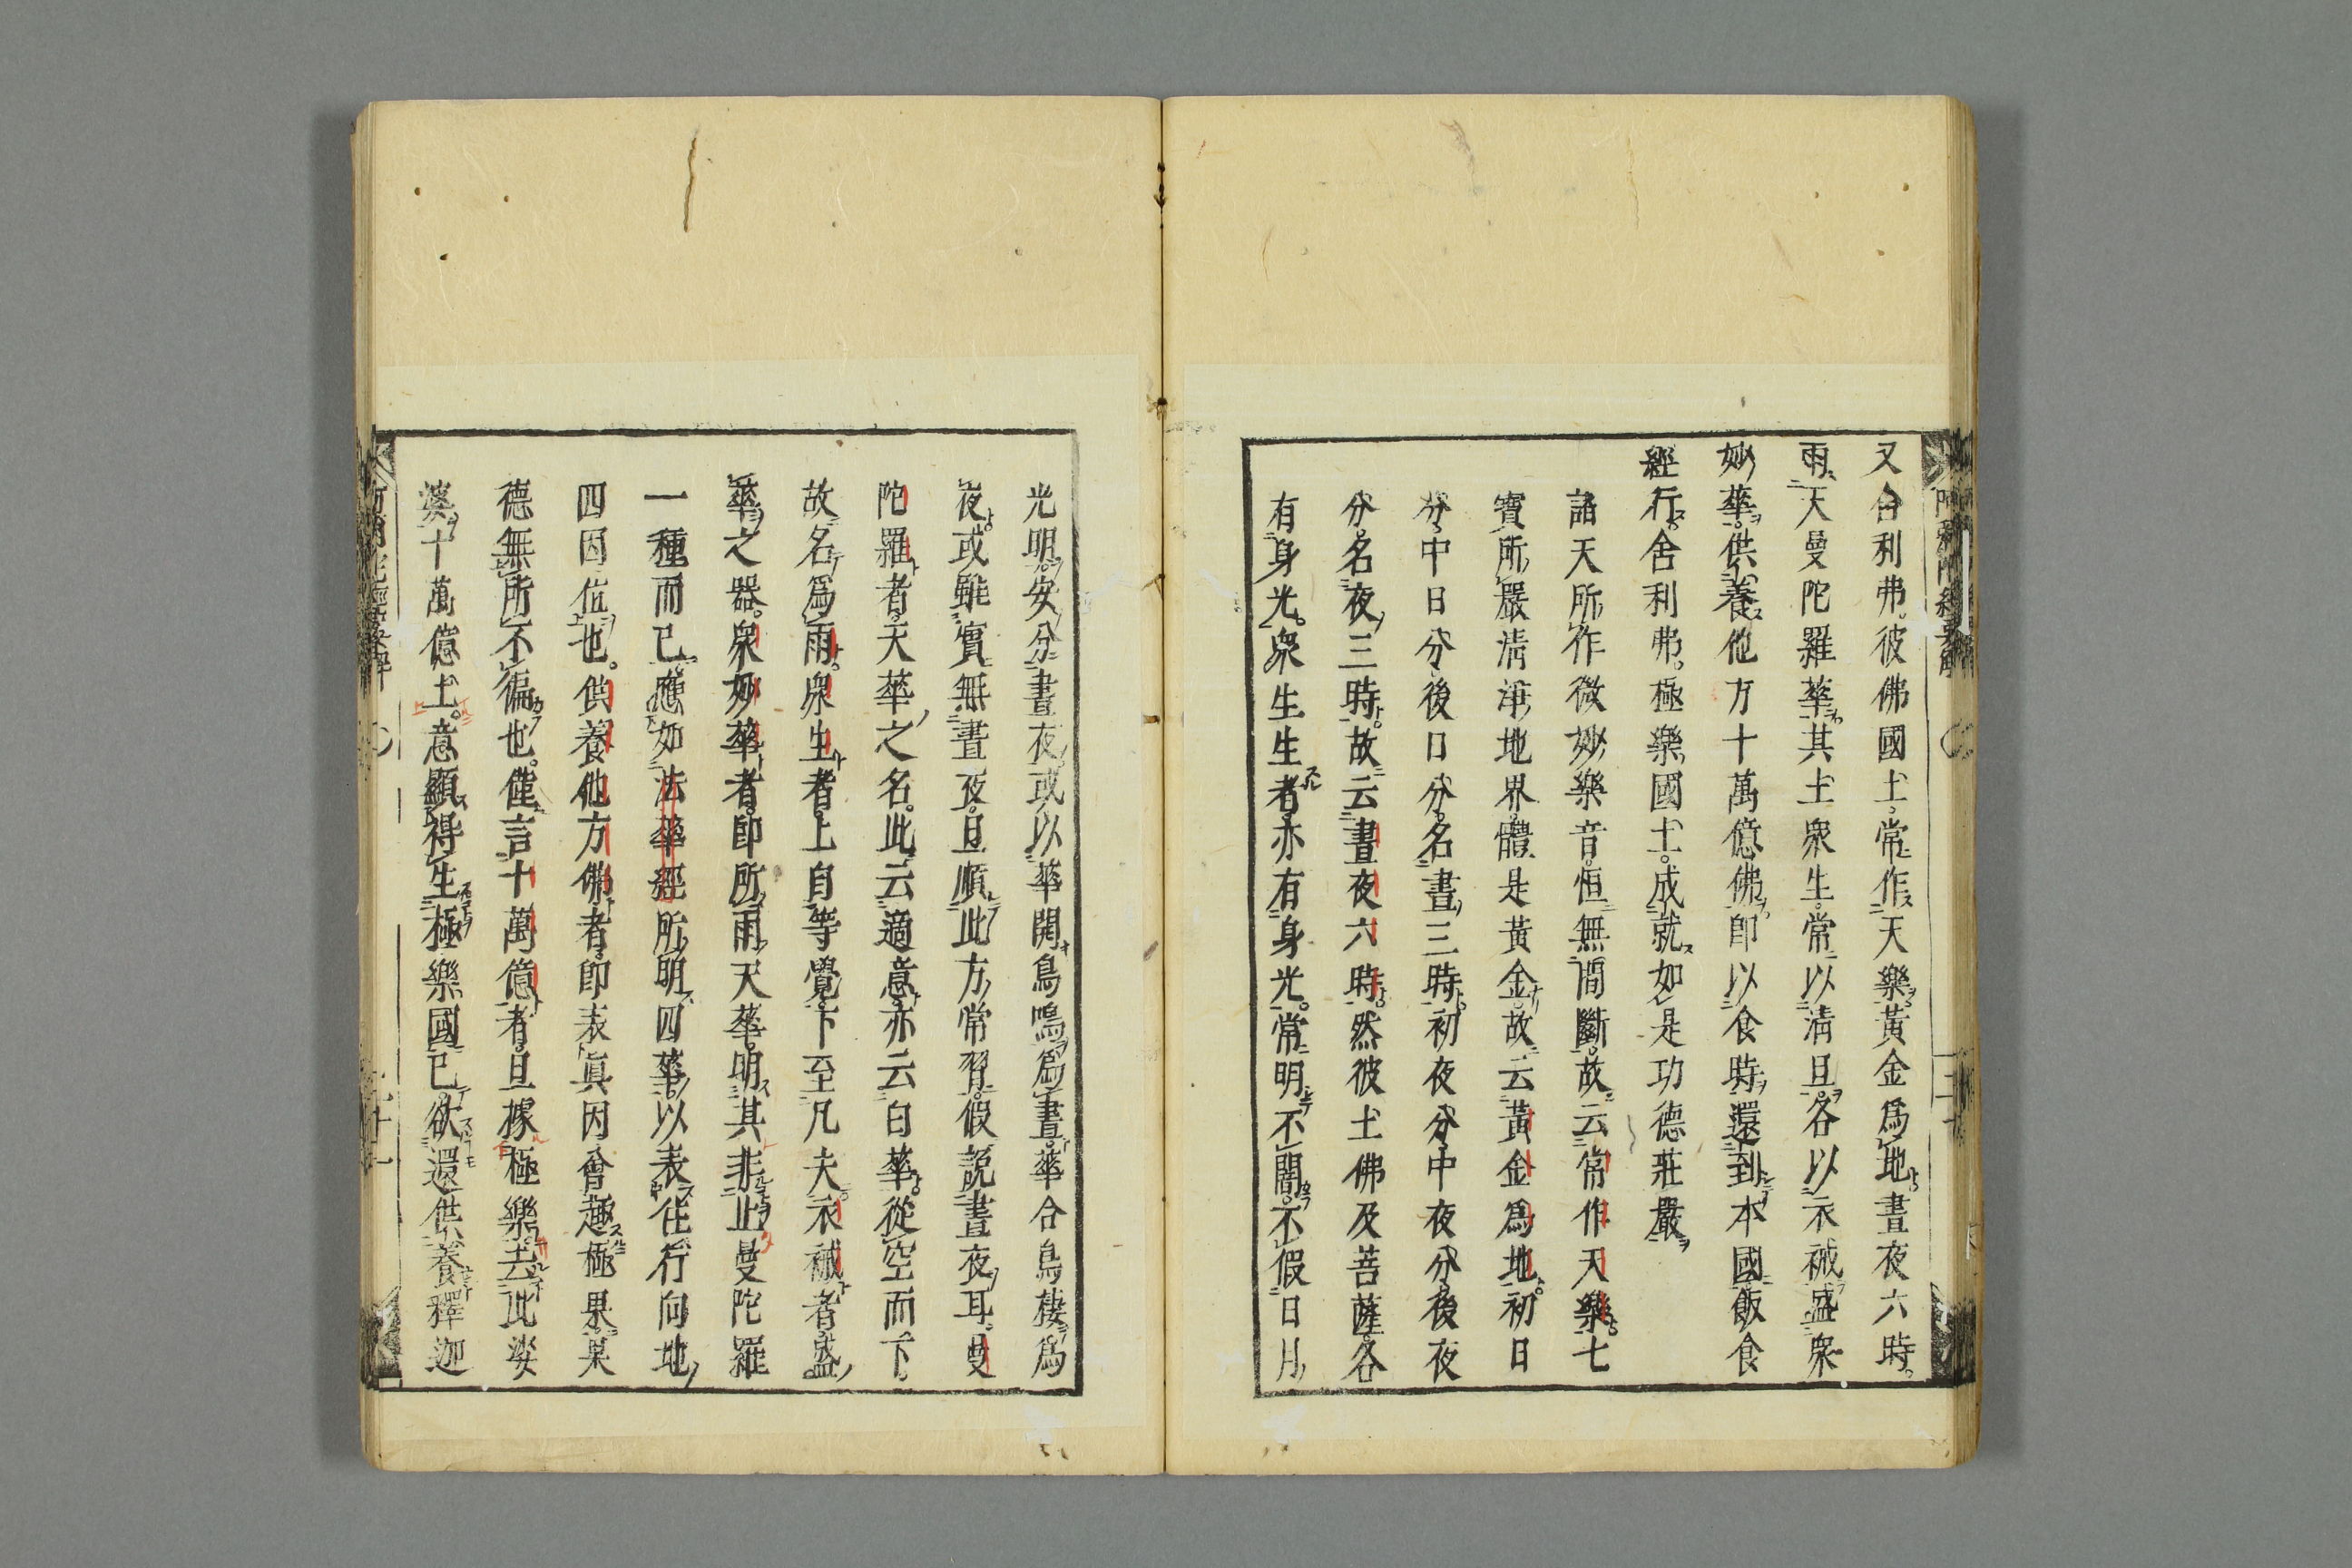 又舍利弗。彼佛國土。常作天樂。黃金爲地。晝夜六時。
雨天曼陀羅華。其土衆生。常以清旦。各以衣祴。盛衆
妙華。供養他方十萬億佛。卽以食時。還到本國。飯食
經行。舍利弗。極樂國土。成就如是功德莊嚴。
諸天所作微妙樂音。恒無間斷。故云常作天樂。七
寶所嚴清淨地界。體是黃金。故云黃金爲地。初日
分。中日分。後日分。名晝三時。初夜分。中夜分。後夜
分。名夜三時。故云晝夜六時。然彼土佛及菩薩。各
有身光。衆生生者。亦有身光。常明不闇。不假日月
光明。安分晝夜。或以華開鳥鳴爲晝。華合鳥棲爲
夜。或雖實無晝夜。且順此方常習。假說晝夜耳。曼
陀羅者。天華之名。此云適意。亦云白華。從空而下。
故名爲雨。衆生者。上自等覺。下至凡夫。衣祴者。盛
華之器。衆妙華者。卽所雨天華。明其非止曼陀羅
一種而已。應如法華經所明四華。以表往行向地
四因位也。供養他方佛者。卽表眞因會趣極果。果
德無所不徧也。僅言十萬億者。且據極樂。去此娑
婆。十萬億土。意顯得生極樂國已。欲還供養釋迦